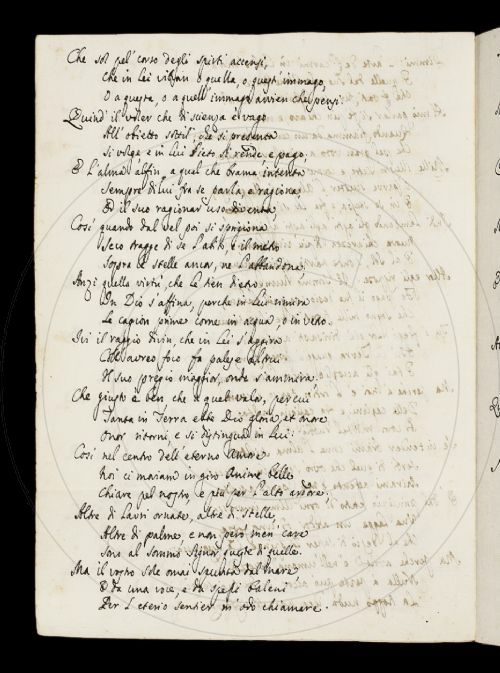 Che sol pel' corso degli spirti accensi,
Che in lei vibran o quella, o quest' immago,
O a questa, o a quell' immago avvien che pensi.
Quind' il voler che di scienza è vago
All' obietto sottil, che si presenta
Si volge e in lui lieto si rende, e pago,
E l'alma alfin a quel che brama intenta
Sempre di lui fra se parla, e ragiona,
Ed il suo ragionar uso diventa,
Così quando dal vel poi si sprigiona
Seco tragge di se l'abito, e il metro
Sopra le stelle ancor, ne l'abbandona.
Anzi quella virtù, che le tien dietro
In Dio s'affina, perche in lui rimira
Le cagion prime come in acqua, o in vetro.
Ivi il raggio divin, che in lei s'aggira
Col'aureo foco fa palese altrui
Il suo pregio maggior, onde s'ammira.
Che giusto è ben che a quel velo, per cui
Tanta in Terra ebbe Dio gloria, et onore
Onor ritorni, e si distingua in lui.
Così nel centro dell' eterno Amore
Noi ci moviamo in giro Anime belle
Chiare pel nostro, e più per l'altr' ardore.
Altre di lauri ornate, altre di stelle,
Altre di palme, e non però men care
Sono al sommo Signor queste di quelle.
Ma il vostro sole omai
E da una voce, e da
Per l'eterio sentier in' odo chiamare.